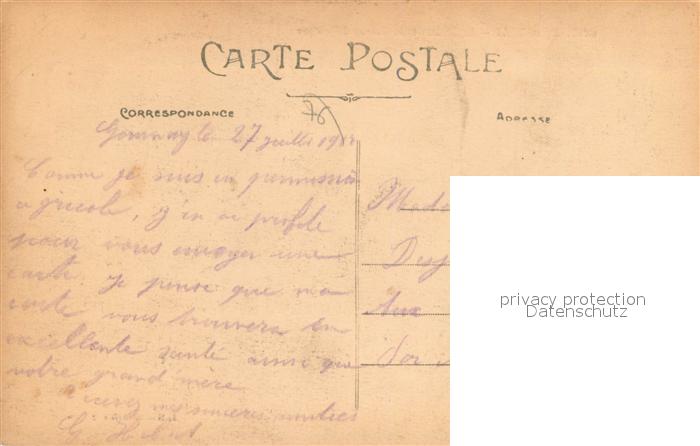 CARTE POSTALE
CORRESPONDANCE
76
ADRESSE
Gournay le 27 juillet 191
Comme je suis en permission
agricole, j'en ai profité
pour vous envoyer une
carte. Je pense que ma
carte vous trouvera en
excellente santé ainsi que
votre grand'mère
Recevez mes sincères amitiés
Mada
Desj
Aux
privacy protection
Datenschutz